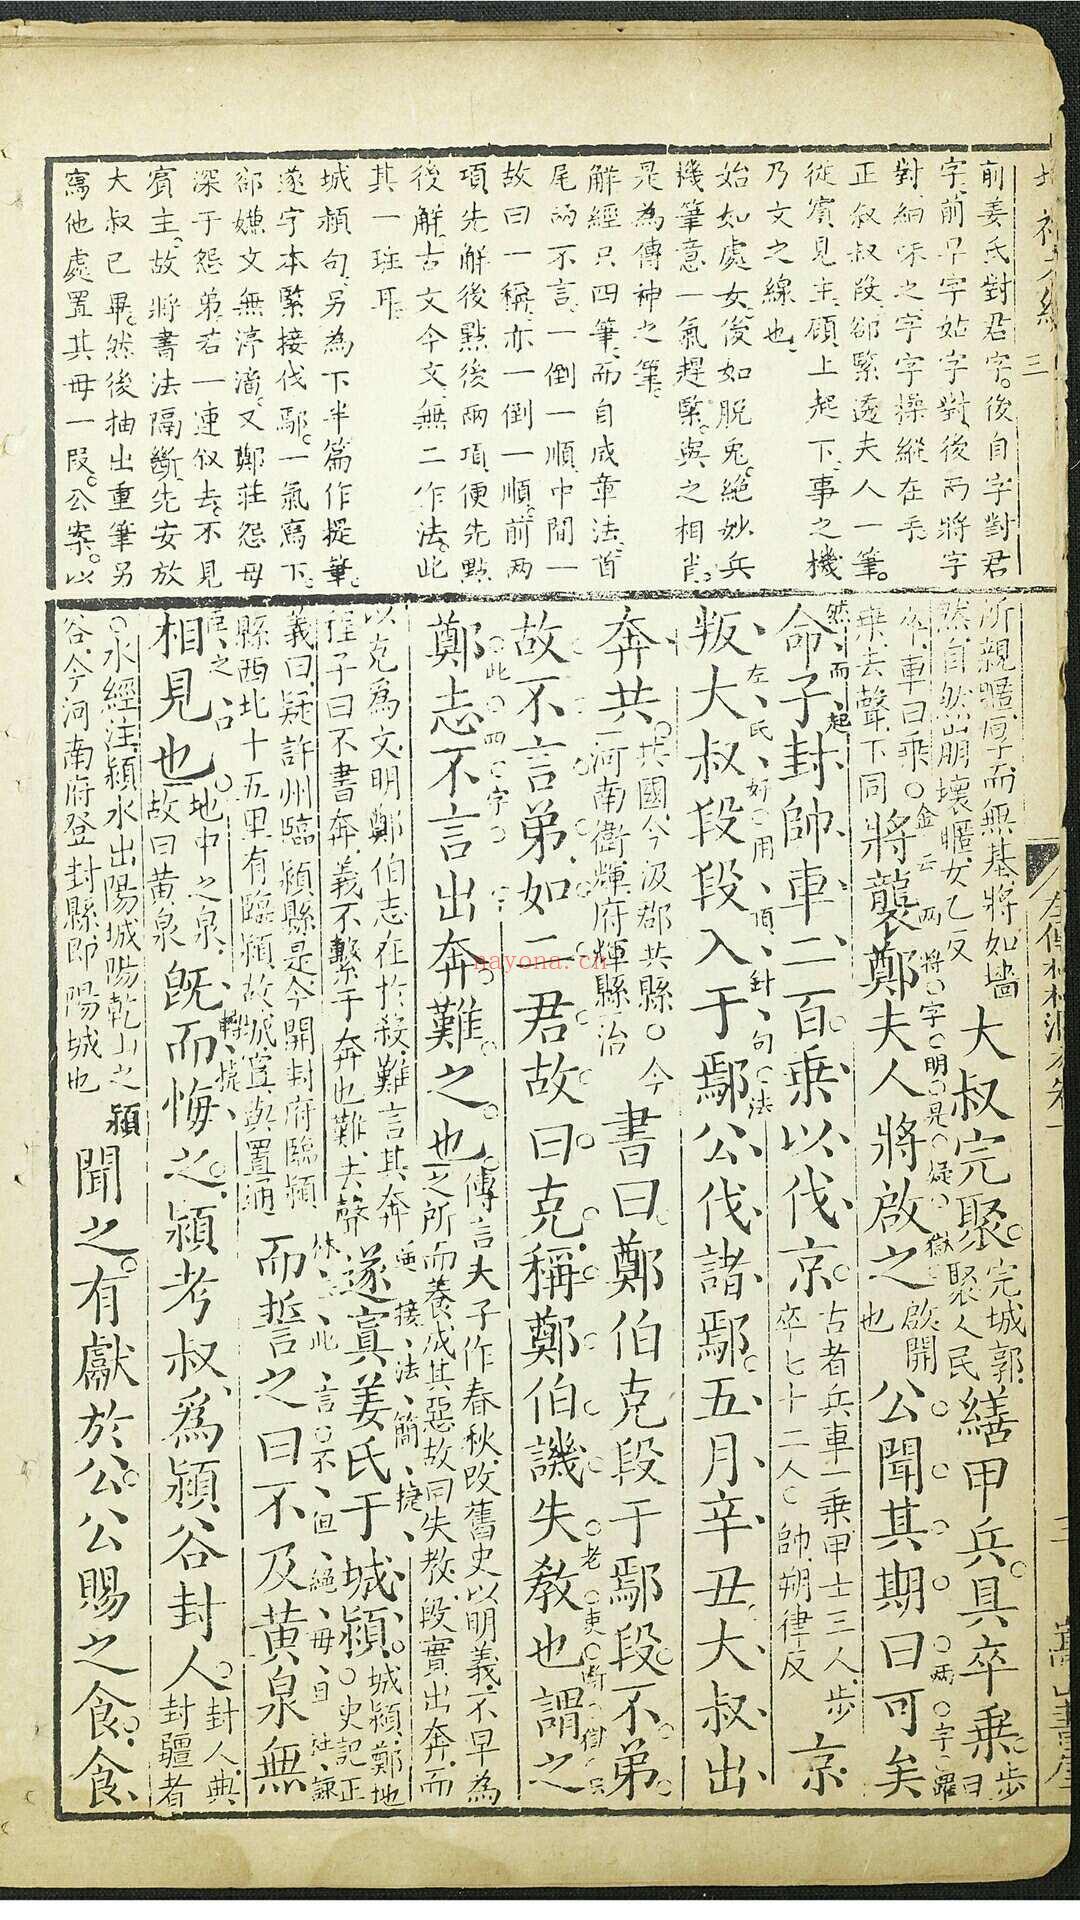 前姜氏對君字。後自字對君
字。前子字姑字對後而將字
對。細味之字字操縱在手。
正叔叔段。卻緊透夫人一筆。
從賓見主。頋上起下。事之機
乃文之線也。
始如處女。後如脫兔。絕妙兵
機。筆意一氣趕緊。與之相肖。
是為傳神之筆。
解經只四筆。而自成章法。首
尾兩不言。一倒一順。中間一
故曰一稱。亦一倒一順。前兩
項先解後點。後兩項便先點
後解。古文今文。無二作法。此
其一班耳。
城潁句。另為下半篇作提筆。
遂字本緊接伐鄢。一氣寫下。
卻嫌文無渟滀。又鄭莊怨母
深于怨弟。若一連敘去。不見
賓主。故將書法隔斷。先安放
大叔已畢。然後抽出重筆另
寫他處置其母一段。公案。以
所親暱。厚而無基。將如墻
然。自然崩壞。暱。女乙反
大叔完聚。完城郭。聚人民
繕甲兵。具卒乘。步曰
卒。車曰乘。○
乘。去聲。下同
將襲鄭。夫人將啟之
啟開也
公聞其期。曰可矣
命子封帥車二百乘。以伐京。
古者兵車一乘。甲士三人。步
卒七十二人。○帥。朔律反
京
叛大叔段。段入于鄢。公伐諸鄢。五月辛丑。大叔出
左氏好用頂針句法
奔共。
共國。今汲郡共縣。○今
河南衛輝府輝縣治
書曰。鄭伯克段于鄢。段不弟
故不言弟。如二君。故曰克。稱鄭伯。譏失教也。謂之
鄭志。不言出奔。難之也。
傳言夫子作春秋。改舊史以明義。不早為
之所。而養成其惡。故曰失教。段實出奔。而
以克為文。明鄭伯志在於殺。難言其奔
程子曰。不書奔。義不繫于奔也。難。去聲
遂寘姜氏于城潁。
城潁。鄭地
○史記正
義曰。疑許州臨潁縣是。今開封府臨潁
縣西北十五里有臨潁故城。寘與置通
而誓之曰。不及黃泉。無
相見也。
地中之泉。
故曰黃泉
既而悔之。潁考叔為潁谷封人。
封人。典
封疆者
○水經注。潁水出陽城陽乾山之潁
谷。今河南府登封縣。即陽城也
聞之。有獻於公。公賜之食。食